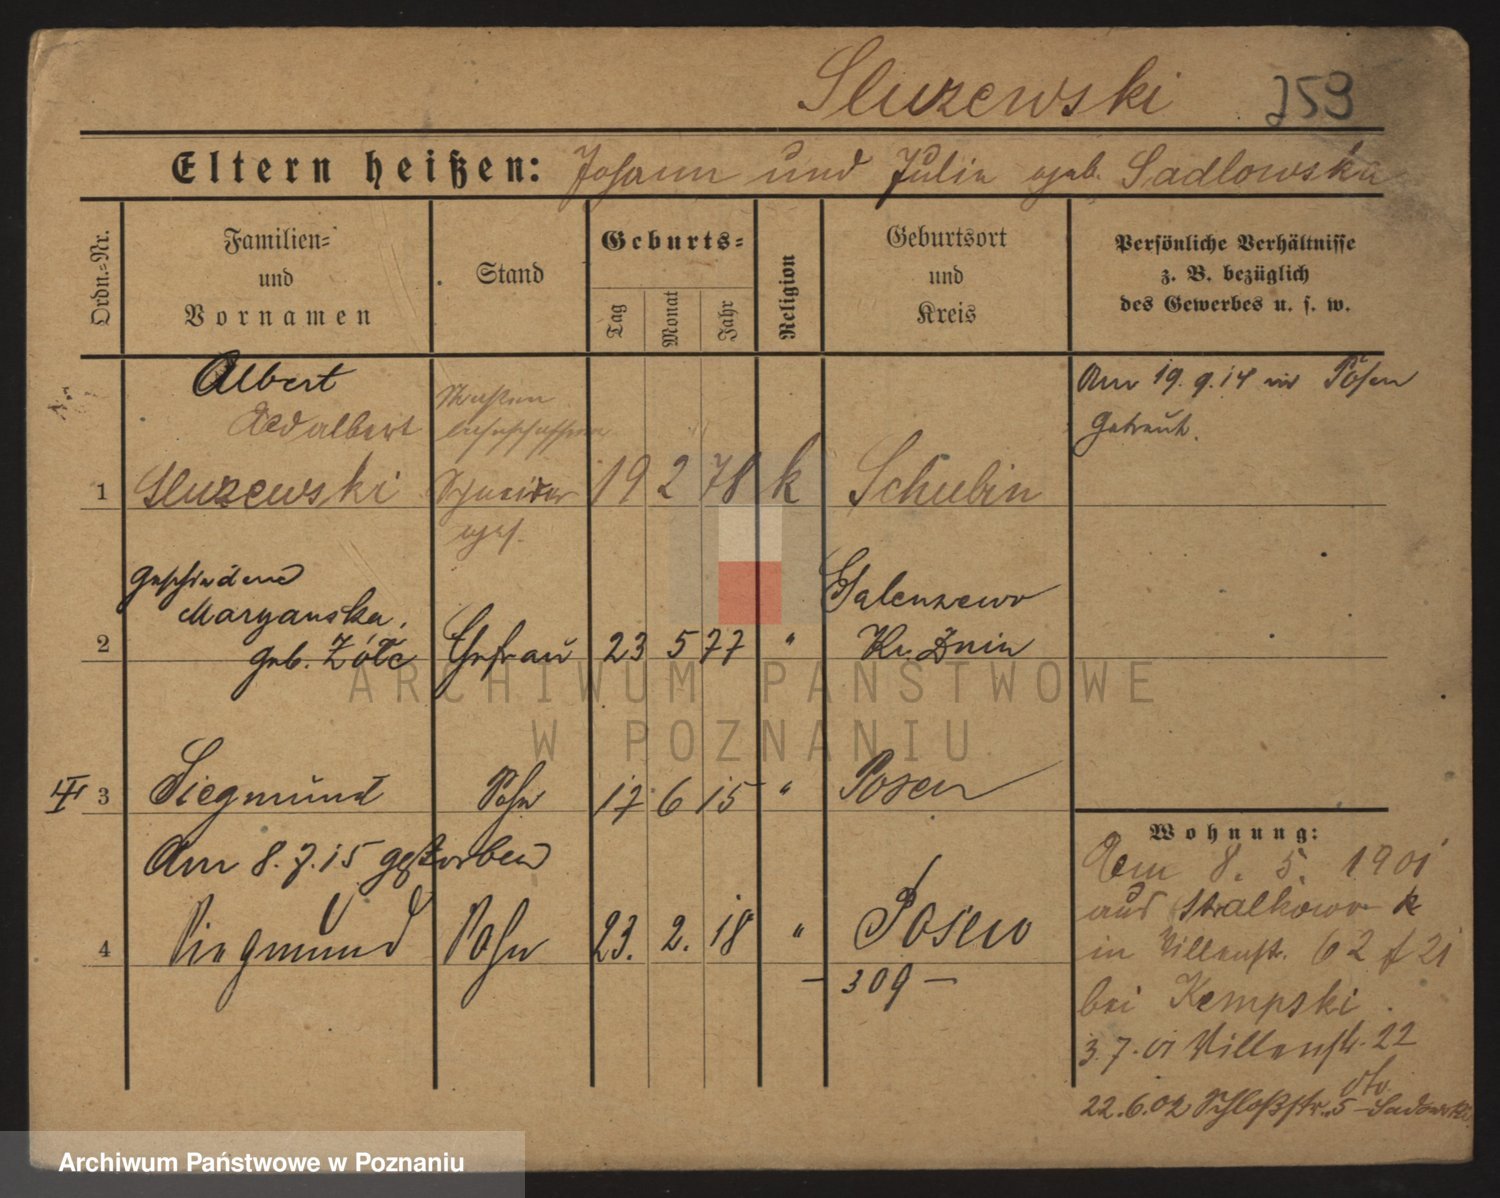 Sluzewski 253
Eltern heißen: Johann und Julia geb. Sadlowska
Ordn.-Nr.
Familien-
und
Vornamen
Stand
Geburts-
Tag
Monat
Jahr
Religion
Geburtsort
und
Kreis
Persönliche Verhältnisse
z. B. bezüglich
des Gewerbes u. s. w.
Albert
Adalbert
1 Sluzewski Schneider 19 2 78 k Schubin
ges.
Am 19.9.14 in Posen
getraut.
geschiedene
Maryanska,
2 geb. Żółć Ehefrau 23 5 77 "
Kr. Znin
3 Siegmund Sohn 17 6 15 " Posen
Am 8.7.15 gestorben
4 Siegmund Sohn 23. 2. 18 " Posen
- 309 -
Wohnung:
Am 8. 5. 1901
aus Stralkowo
in 62
bei Kempski.
3.7.01 22
22.6.02 Schloßstr. 5
ARCHIWUM PAŃSTWOWE
W POZNANIU
Archiwum Państwowe w Poznaniu